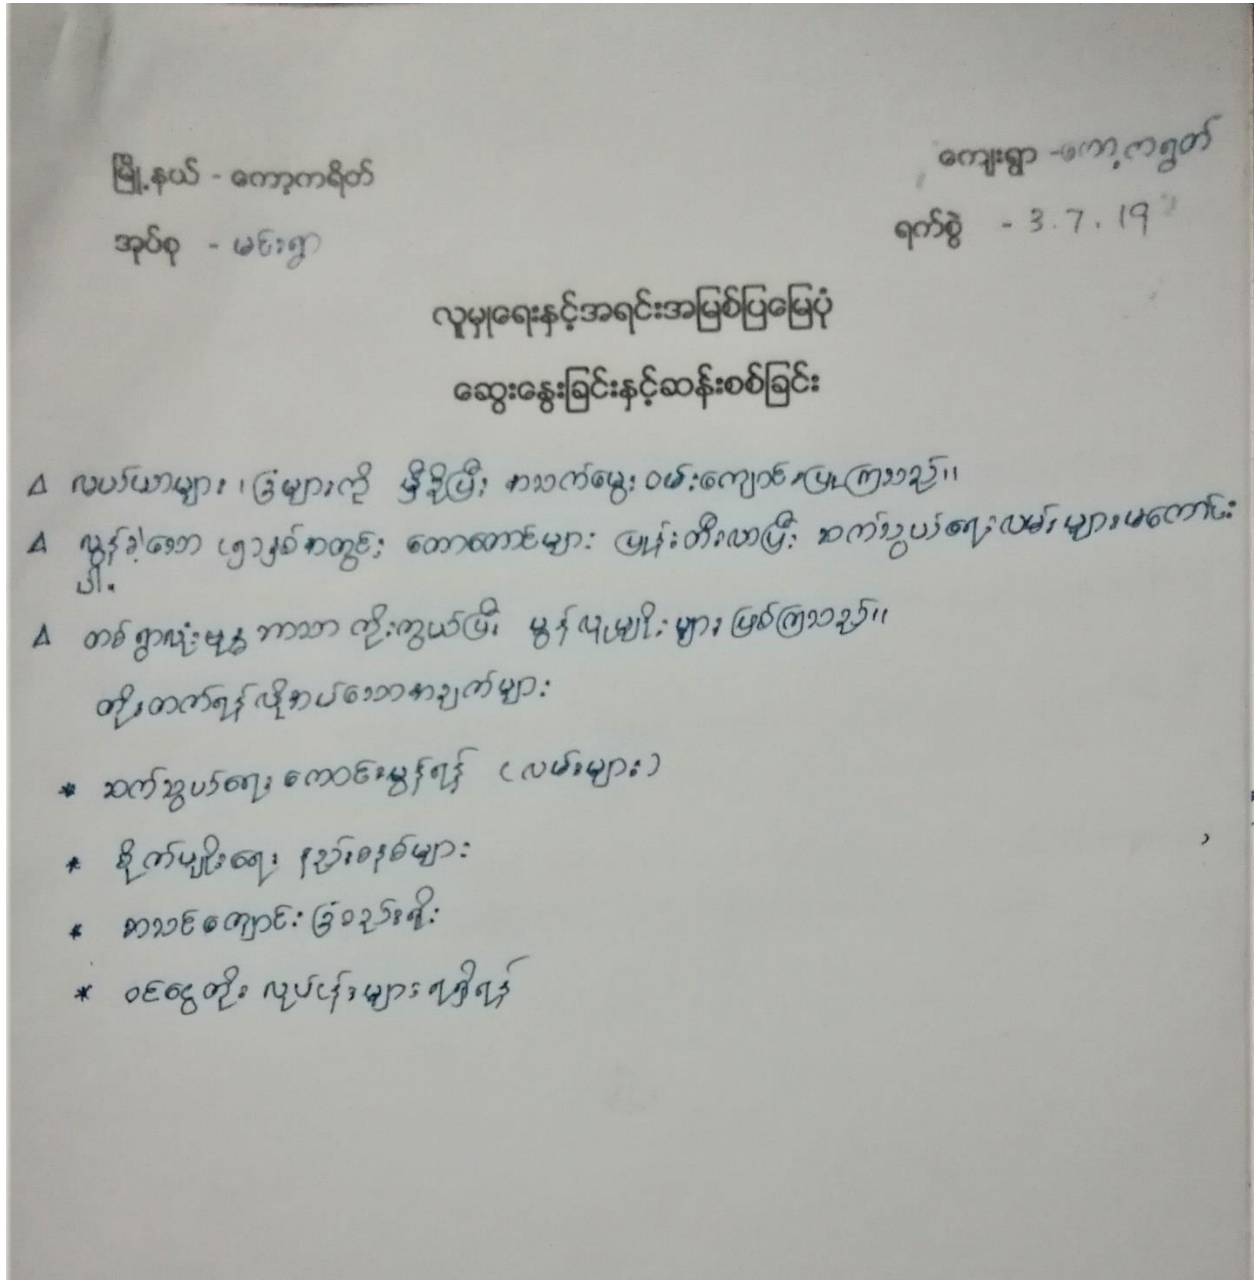 မြို့နယ် - ကော့ကရိတ်
ကျေးရွာ - ကော့ကရွတ်
အုပ်စု - မင်းရွာ
ရက်စွဲ - 3.7.19
လူမှုရေးနှင့်အရင်းအမြစ်ပြမြေပုံ
ဆွေးနွေးခြင်းနှင့်ဆန်းစစ်ခြင်း
∆ လယ်ယာများ၊ ခြံများကို မှီခိုပြီး အသက်မွေးဝမ်းကျောင်းပြုကြသည်။
∆ လွန်ခဲ့သော (၅)နှစ်အတွင်း တောတောင်များ ပြုန်းတီးလာပြီး ဆက်သွယ်ရေးလမ်းများမကောင်း
ပါ.
∆ တစ်ရွာလုံးဗုဒ္ဓဘာသာ ကိုးကွယ်ပြီး မွန်လူမျိုးများဖြစ်ကြသည်။
တိုးတက်ရန်လိုအပ်သောအချက်များ
* ဆက်သွယ်ရေး ကောင်းမွန်ရန် (လမ်းများ)
* စိုက်ပျိုးရေး နည်းစနစ်များ
* စာသင်ကျောင်း ခြံစည်းရိုး
* ဝင်ငွေတိုး လုပ်ငန်းများရရှိရန်